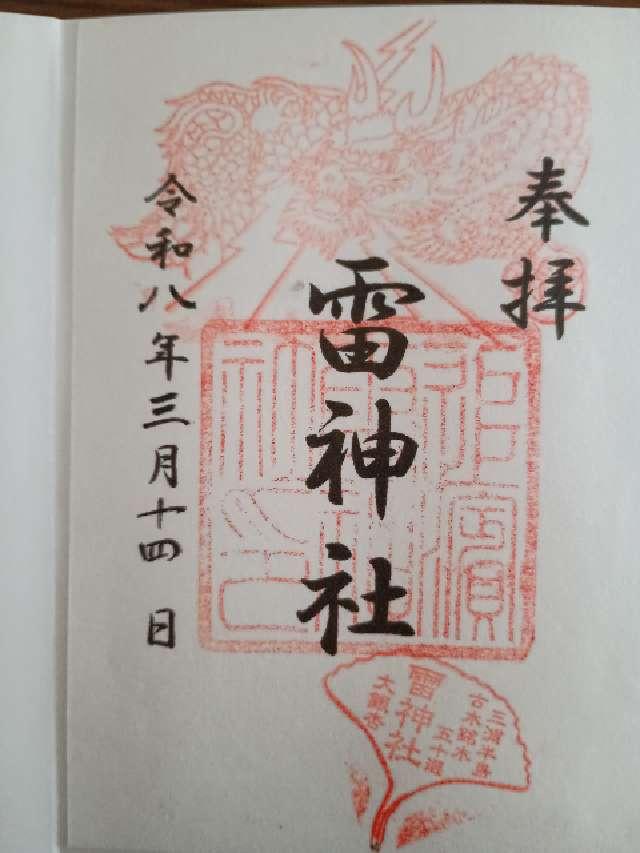 奉拝
雷神社
令和八年三月十四日
三浦半島
古木銘木
五十選
雷神社
大銀杏